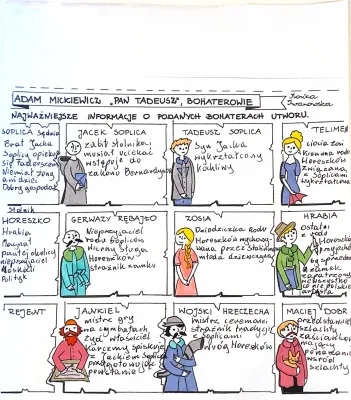 ADAM MICKIEWICZ "PAN TADEUSZ", BOHATEROWIE
NAJWAŻNIEJSZE INFORMACJE O PODANYCH BOHATERACH UTWORU.
SOPLICA Sędzia
Brat Jacka
Soplicy opiekuje
się Tadeuszem
Nie miał żony
ani dzieci
Dobry gospodarz
JACEK SOPLICA
zabił stolnika,
musiał uciekać
wstępuje do
zakonu Bernardynów
TADEUSZ SOPLICA
Syn Jacka
wykształcony
kochliwy
TELIMENA
ciocia Zosi
Krewna rodu
Horeszków
związana
z Soplicami
Wykształcona
Stolnik
HORESZKO
Hrabia
Magnat
pan tej okolicy
nieprzyjaciel
Moskali
Polityk
GERWAZY RĘBAJŁO
Nieprzyjaciel
rodu Sopliców
Wierny sługa
Horeszków
strażnik zamku
ZOSIA
Dziedziczka Rodu
Horeszków wychowy-
wana przez
młoda dziewczyna
HRABIA
Ostatni
z rodu
Horeszków
zamek
zapatrzony
REJENT
JANKIEL
mistrz gry
na cymbałach
żyd właściciel
karczmy spiskuje
z Jackiem Soplicą
przygotowując
powstanie
WOJSKI HRECZECHA
mistrz ceremonii
strażnik tradycji
z Soplicami
wróg Horeszków
MACIEJ DOBR
przedstawiciel
szlachty
zaściankowej
mający
poważanie
wśród
szlachty